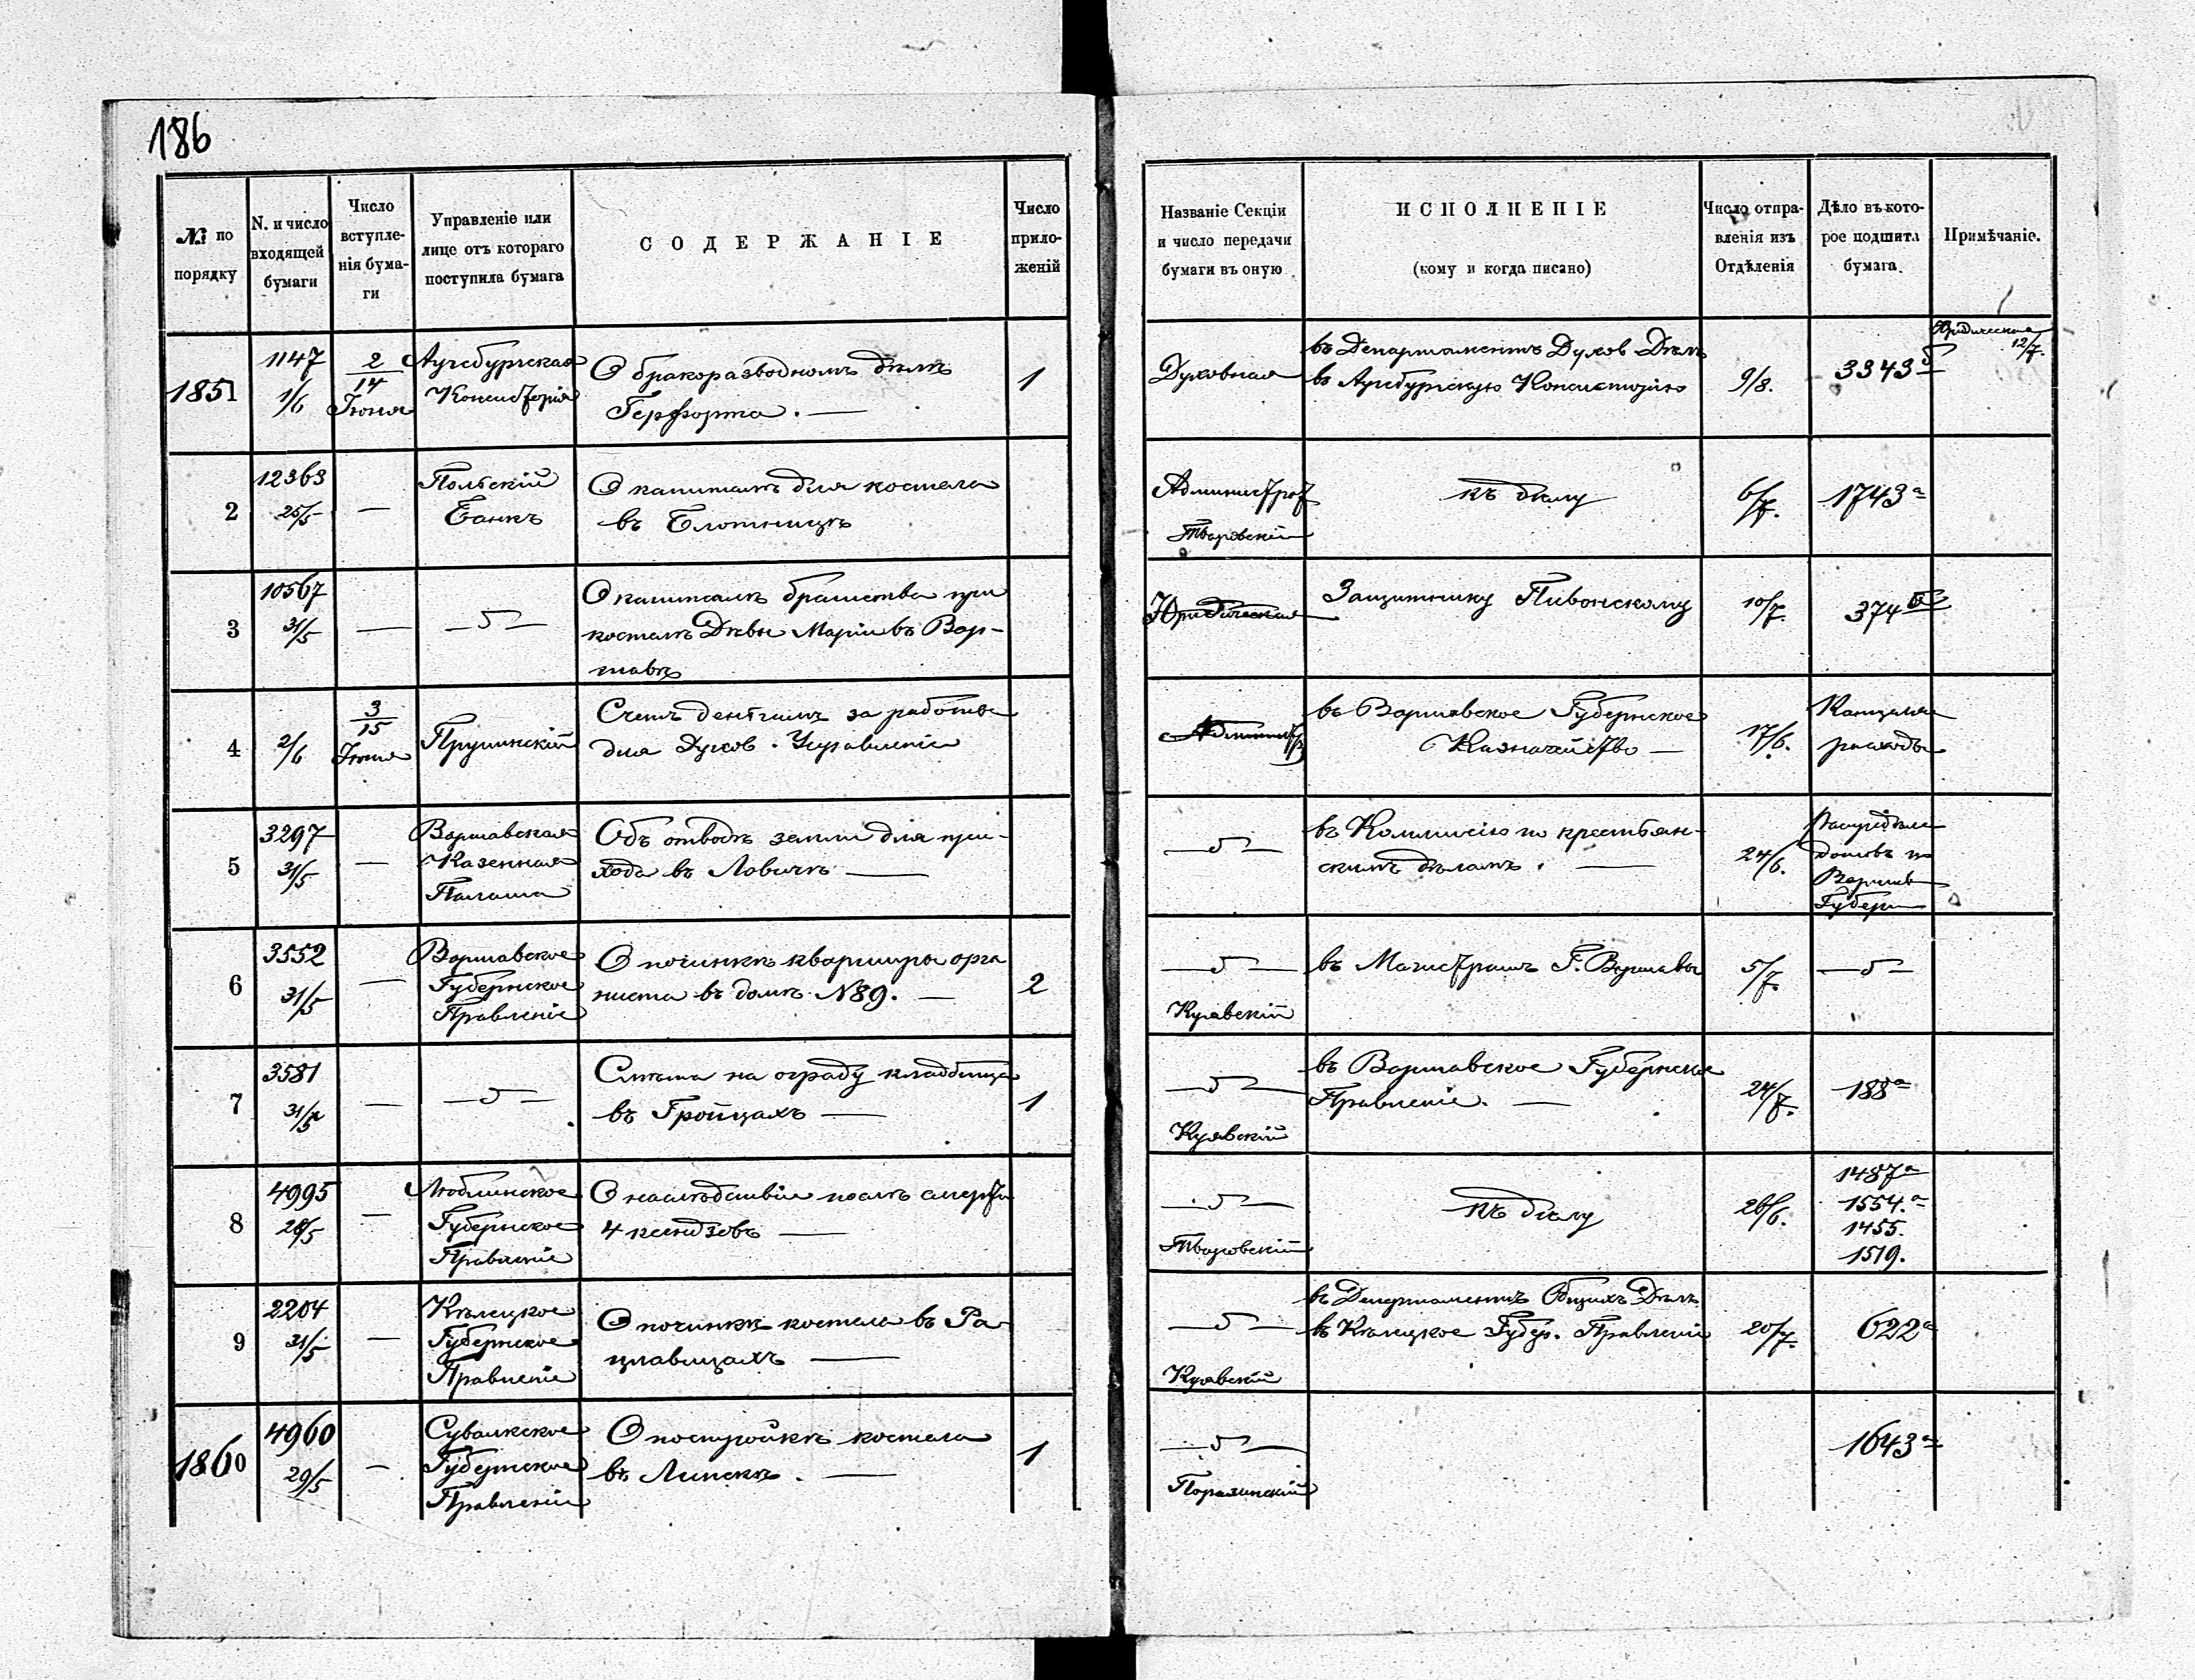 186
№ по порядку
N. и число входящей бумаги
Число вступленія бумаги
Управленіе или лице отъ котораго поступила бумага
СОДЕРЖАНІЕ
Число приложеній
Названіе Секціи и число передачи бумаги въ оную
ИСПОЛНЕНІЕ
(кому и когда писано)
Число отправленія изъ Отдѣленія
Дѣло въ которое подшита бумага
Примѣчаніе.
1851
1147
1/6
2/14 Іюня
Аугсбургская
Консисторія
О бракоразводномъ дѣлѣ
1
Духовная
въ Департаментъ Духов Дѣлъ
въ Аугсбургскую Консисторію
9/8.
3343
Юридическая
12/7.
2
12363
25/5
—
Польскій
Банкъ
О капиталѣ для костела
въ Блотницѣ
Администрат
Тваровскій
къ дѣлу
6/7.
1743а
3
10567
31/5
—
— " —
О капиталѣ братства при
костелѣ Дѣвы Маріи въ Вар-
шавѣ
Юридическая
Защитнику Пивонскому
10/7.
374
4
2/6
3/15 Іюня
Прушинскій
Счетъ деньгамъ за работы
для Духов. Управленія
Админист
въ Варшавское Губернское
Казначейство —
17/6.
расходы
5
3297
31/5
—
Варшавская
Казенная
Палата
Объ отводѣ земли для при-
хода въ Ловичѣ —
— " —
въ Коммисію по крестьян-
скимъ дѣламъ. —
24/6.
домовъ по
Варшав
Губерн
6
3552
31/5
—
Варшавское
Губернское
Правленіе
О починкѣ квартиры орга
ниста въ домѣ N89. —
2
— " —
Куявскій
въ Магистратъ Г. Варшавы
5/7.
— " —
7
3581
31/5
—
— " —
Смѣта на ограду кладбища
въ Гройцахъ —
1
— " —
Куявскій
въ Варшавское Губернское
Правленіе. —
24/7.
188а
8
4995
28/5
—
Люблинское
Губернское
Правленіе
О наслѣдствіи послѣ смерти
4 ксендзовъ —
— " —
Тваровскій
къ дѣлу
26/6.
1487а
1554.а
1455.
1519.
9
2204
31/5
—
Кѣлецкое
Губернское
Правленіе
О починкѣ костела въ Ра-
цлавицахъ —
— " —
Куявскій
въ Департаментъ Общихъ Дѣлъ
въ Кѣлецкое Губер. Правленіе
20/7.
622а
1860
4960
29/5
—
Сувалкское
Губернское
Правленіе
О постройкѣ костела
въ Липскѣ. —
1
— " —
1643а